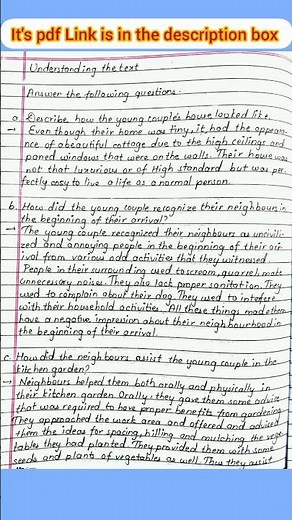 It's pdf Link is in the description box
Understanding the text
Answer the following questions.
a. Describe how the young couple's house looked like.
→ Even though their home was tiny, it had the appeara-
nce of a beautiful cottage due to the high ceilings and
paned windows that were on the walls. Their house was
not that luxurious or of High standard but was per-
fectly cosy to live a life as a normal person.
b. How did the young couple recognize their neighbours in
the beginning of their arrival?
→ The young couple recognized their neighbours as uncivili-
zed and annoying people in the beginning of their arr-
ival from various odd activities that they witnessed.
People in their surrounding used to scream, quarrel, make
unnecessary noise. They also lack proper sanitation. They
used to complain about their dog. They used to interfere
with their household activities. All these things made them
have a negative impression about their neighbourhood in
the beginning of their arrival.
c. How did the neighbours assist the young couple in the
kitchen garden?
→ Neighbours helped them both orally and physically in
their kitchen garden. Orally they gave them some advice
that was required to have proper benefits from gardening.
They approached the work area and offered and advised
them the ideas for spacing, hilling and mulching the vege-
tables they had planted. They provided them with some
seeds and plants of vegetables as well. Thus they assist